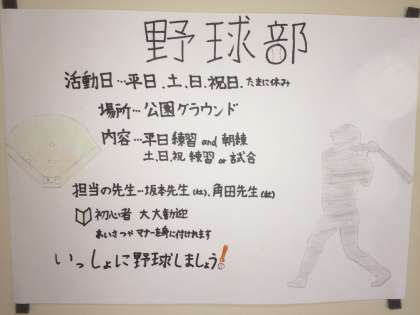 野球部
活動日…平日、土、日、祝日、たまに休み
場所…公園グラウンド
内容…平日練習 and 朝練
土、日、祝 練習 or 試合
担当の先生…坂本先生、角田先生
初心者 大大歓迎
あいさつや マナーを身に付けれます
いっしょに野球しましょう!